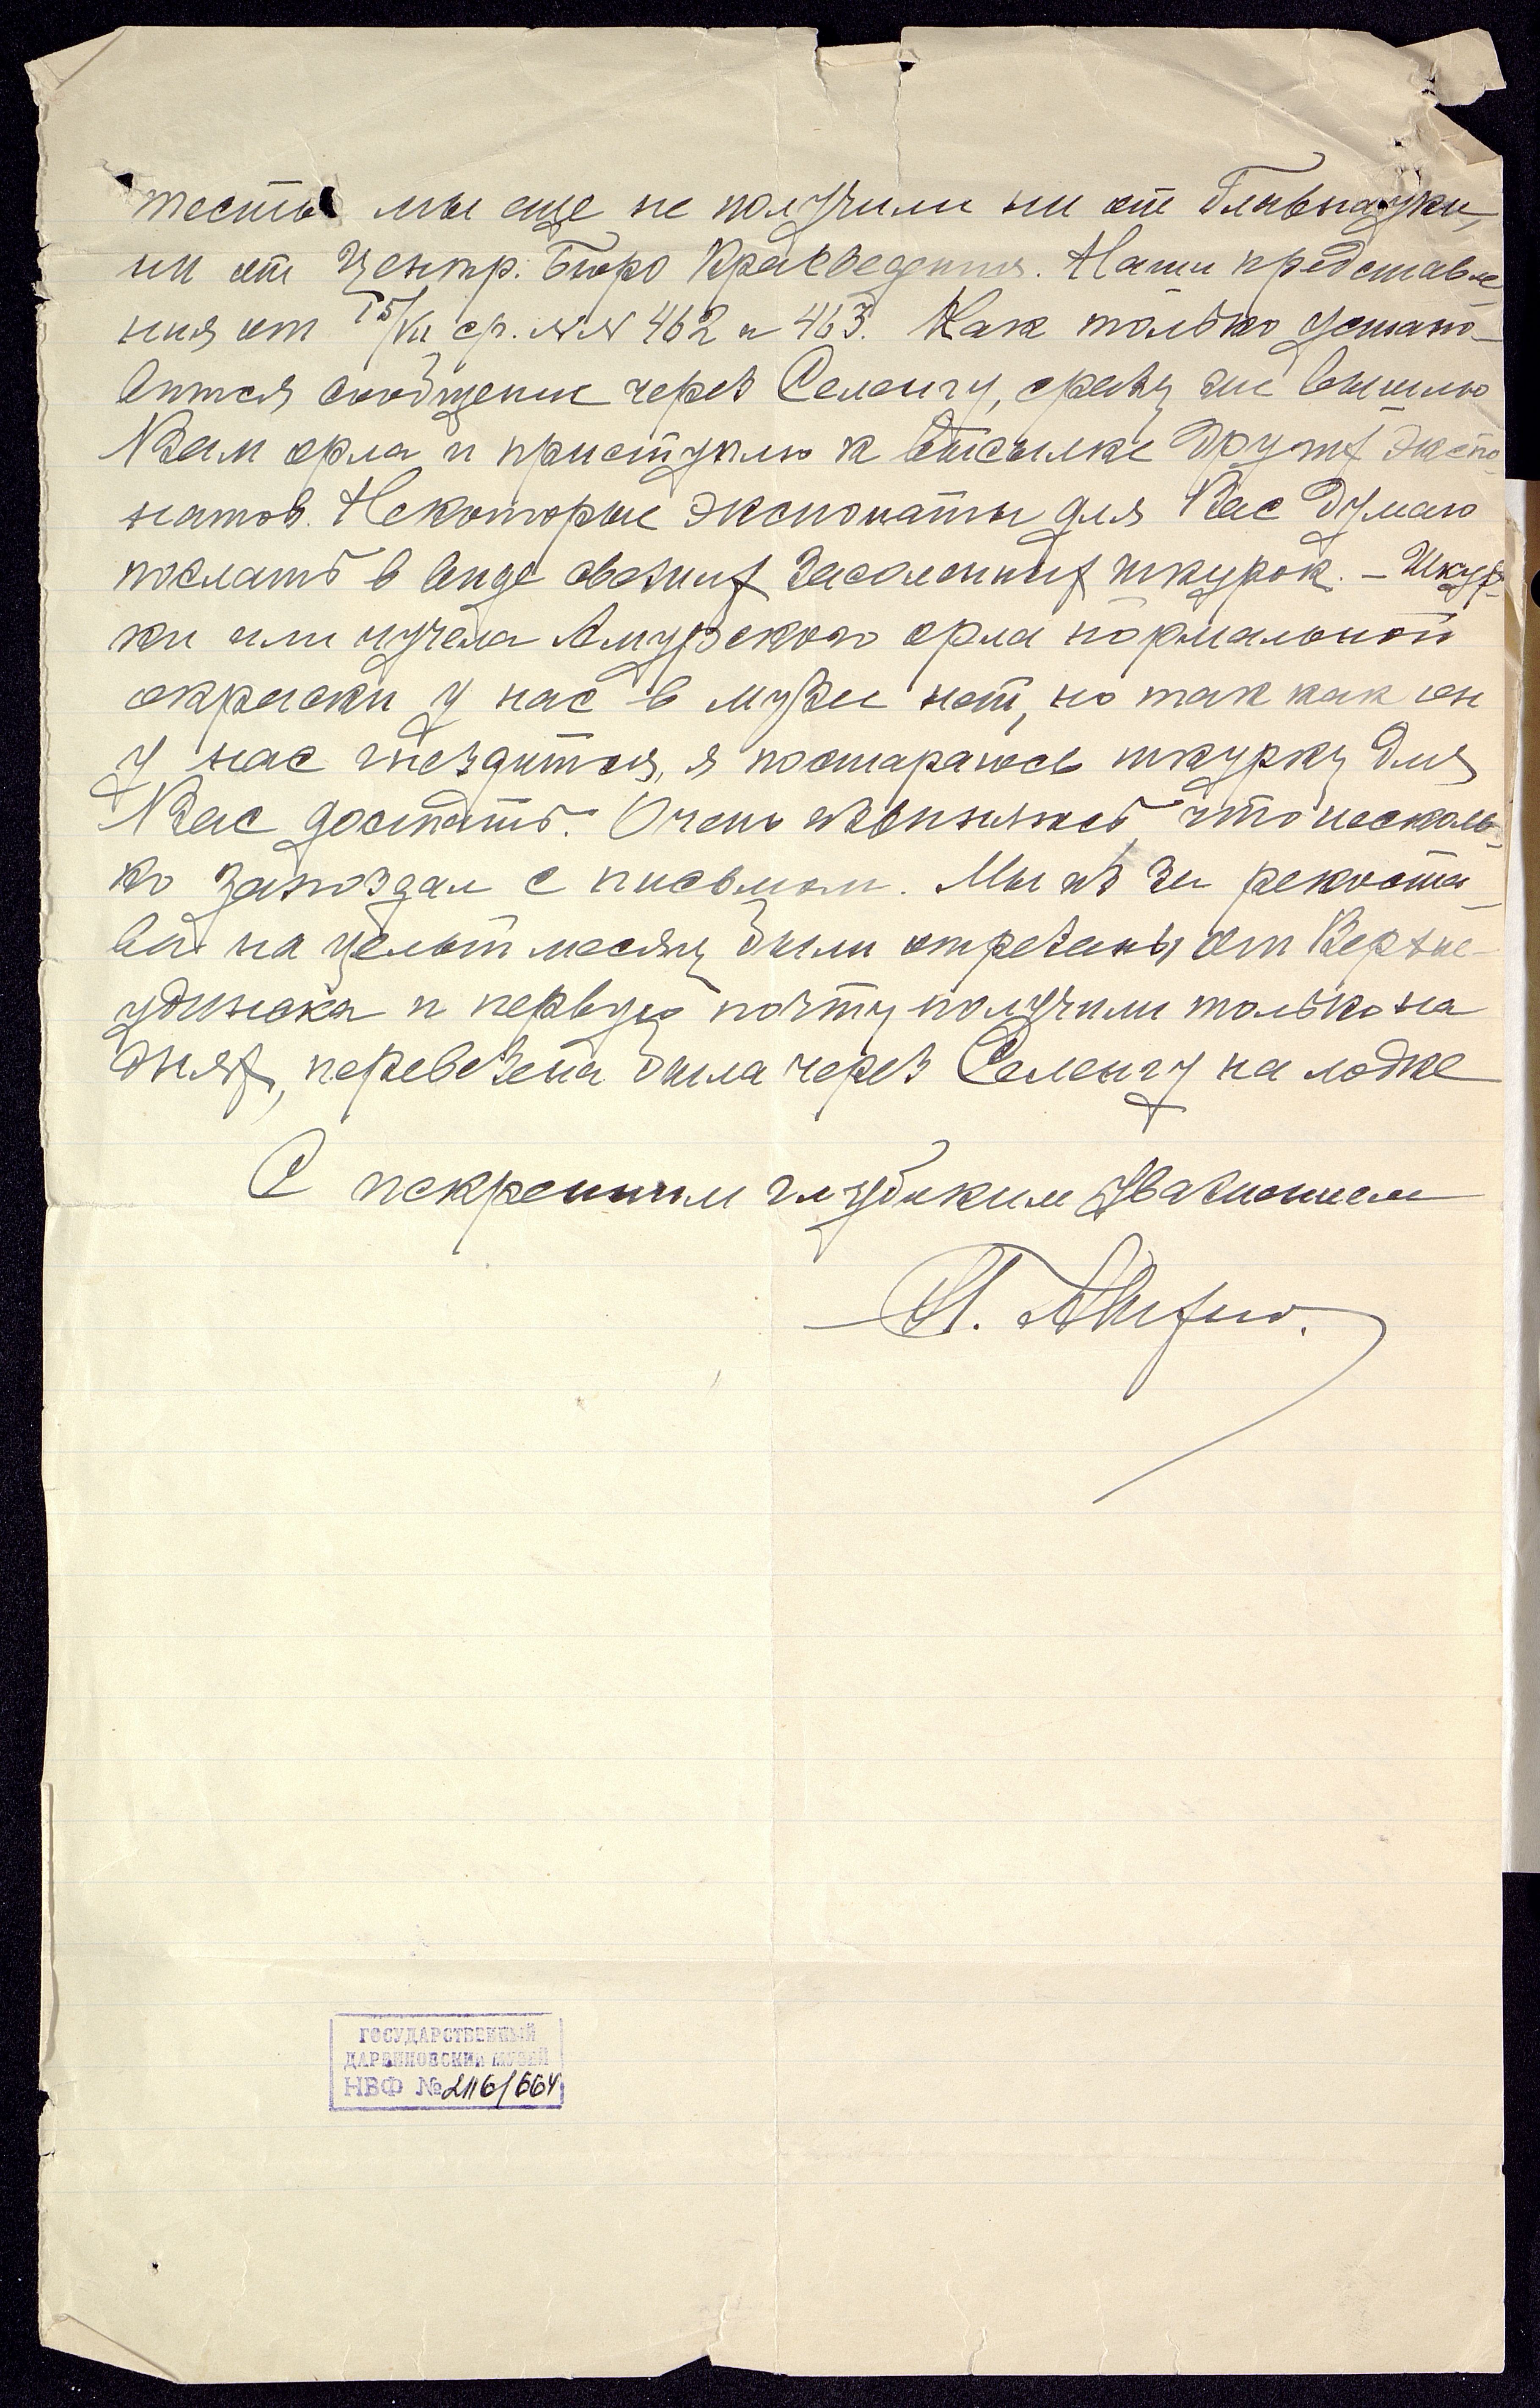 тесты мы еще не получили ни от Главнауки,
ни от Центр. Бюро Краеведения. Наши представле
ния от 15/VII ср. №№ 462 и 463. Как только устано-
вится сообщение через Селенгу, сразу же вышлю
Вам орла и приступлю к высылке других экспо-
натов. Некоторые экспонаты для Вас думаю
послать в виде свежих засоленных шкурок. – Шкур-
ки или чучела Амурского орла нормальной
окраски у нас в музее нет, но так как он
у нас гнездится, я постараюсь шкурку для
Вас достать. Очень извиняюсь, что несколь-
ко запоздал с письмом. Мы из за рекоста-
ва на целый месяц были отрезаны от Верхне-
удинска и первую почту получили только на
днях, перевезена была через Селенгу на лодке
С искренним глубоким уважением
П. Михно.
ГОСУДАРСТВЕННЫЙ
ДАРВИНОВСКИЙ МУЗЕЙ
НВФ № 2116/664